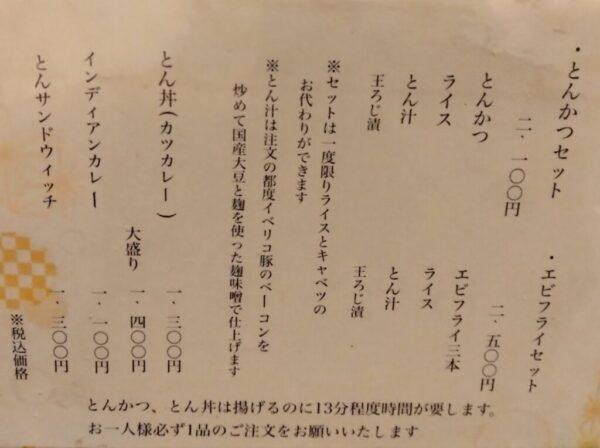 ・とんかつセット
二・一〇〇円
とんかつ
ライス
とん汁
王ろじ漬
・エビフライセット
二・五〇〇円
エビフライ三本
ライス
とん汁
王ろじ漬
※セットは一度限りライスとキャベツの
お代わりができます
※とん汁は注文の都度イベリコ豚のベーコンを
炒めて国産大豆と麹を使った麹味噌で仕上げます
とん丼(カツカレー) 一・三〇〇円
大盛り 一・四〇〇円
インディアンカレー 一・一〇〇円
とんサンドウィッチ 一・三〇〇円
※税込価格
とんかつ、とん丼は揚げるのに13分程度時間が要します。
お一人様必ず1品のご注文をお願いいたします